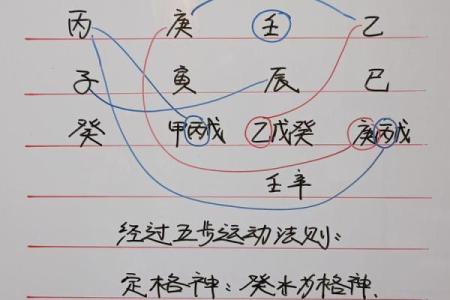 丙 庚 壬 乙
子 寅 辰 巳
癸 甲丙戊 乙戊癸 庚丙戊
壬辛
经过五步运动法则：
定格神：癸水为格神.